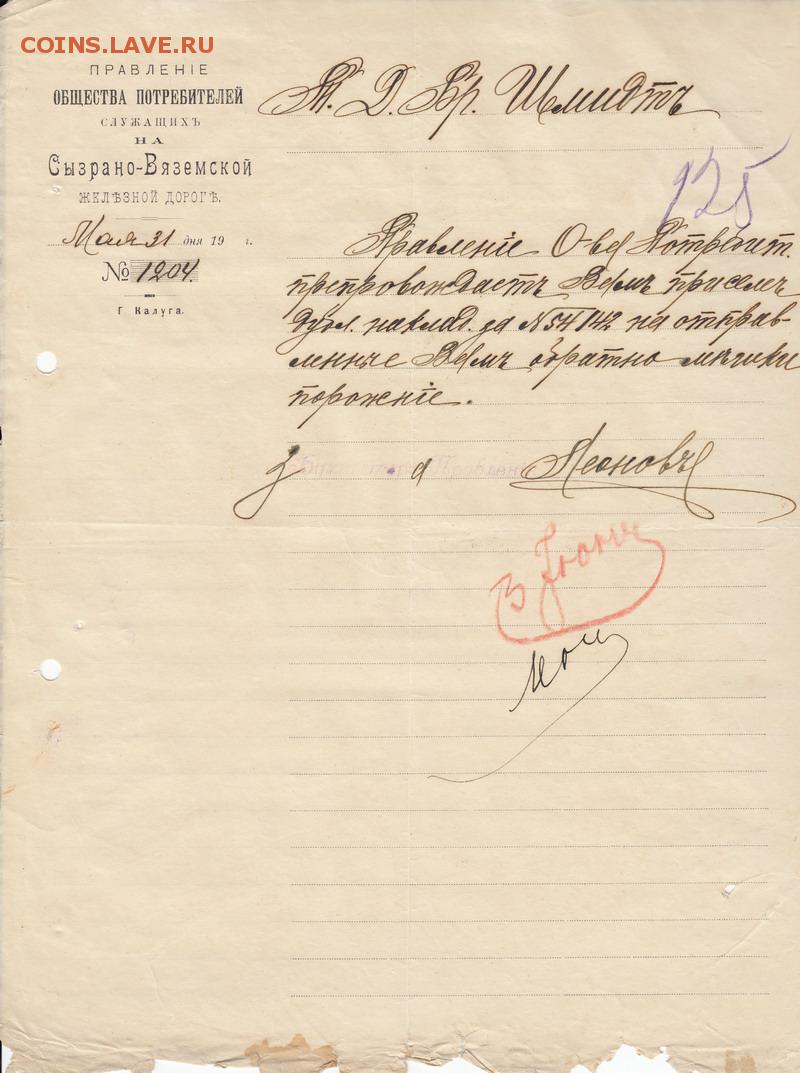 COINS.LAVE.RU
ПРАВЛЕНІЕ
ОБЩЕСТВА ПОТРЕБИТЕЛЕЙ
СЛУЖАЩИХЪ
НА
Сызрано-Вяземской
ЖЕЛѢЗНОЙ ДОРОГѢ.
Мая 31 дня 19 г.
№ 1204.
Г Калуга.
Т. Д. Бр. Шмидтъ
125
Правленіе О-ва Потребит.
препровождаетъ Вамъ при семъ
дубл. наклад. за N 54142 на отправ-
ленные Вамъ обратно мѣшки
порожніе.
Леоновъ
В